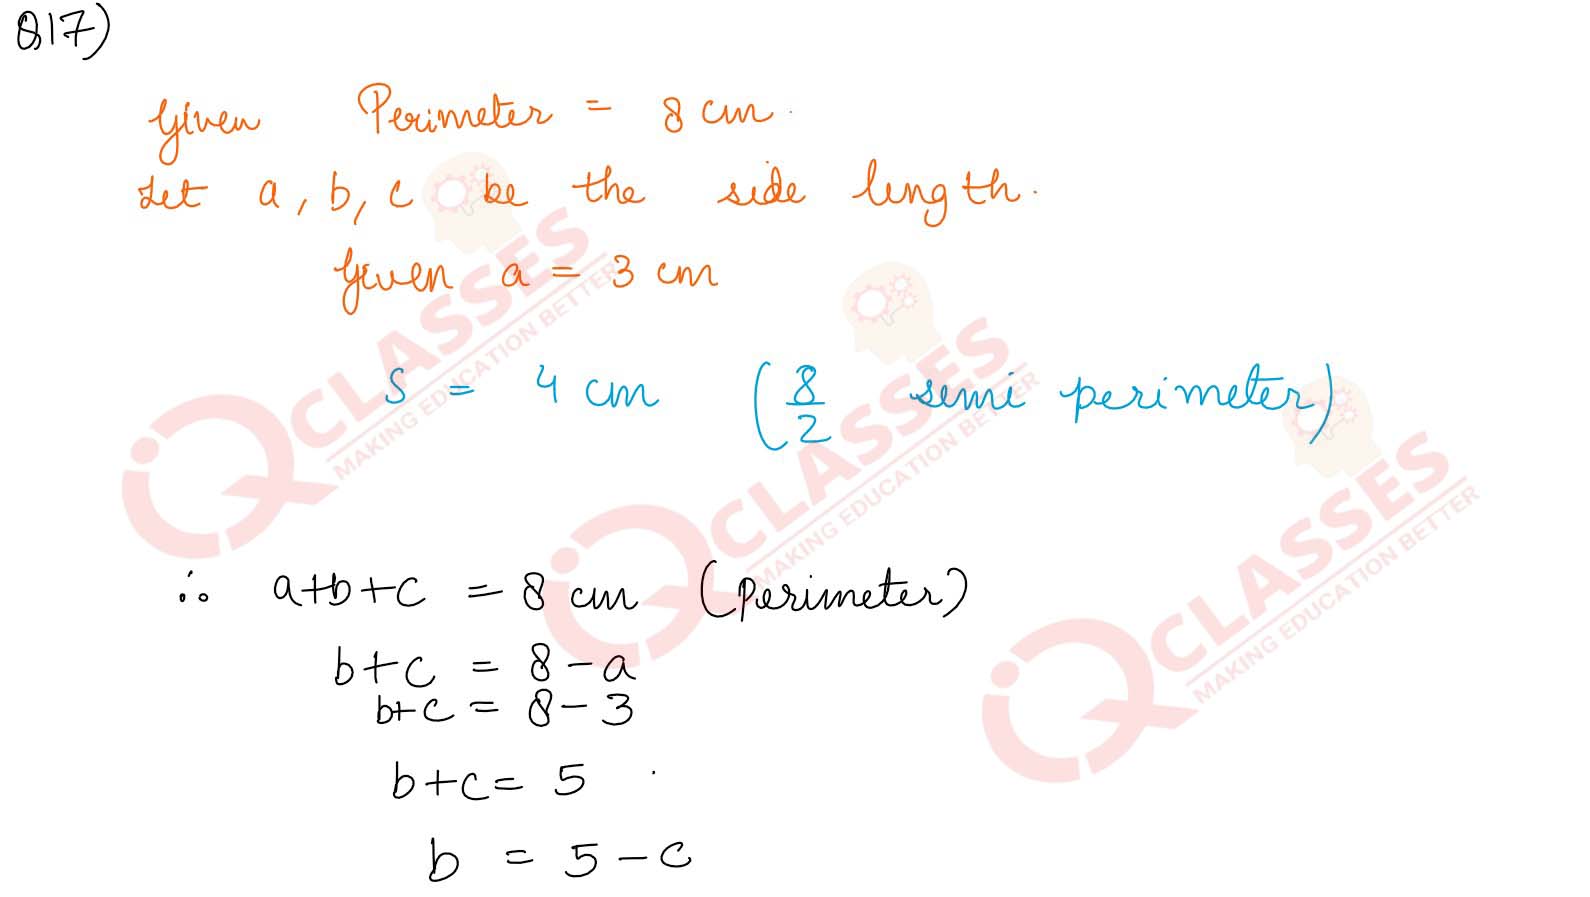 Q17)
Given Perimeter = 8 cm.
Let a, b, c be the side length.
Given a = 3 cm
S = 4 cm (8/2 semi perimeter)
∴ a+b+c = 8 cm (Perimeter)
b+c = 8-a
b+c = 8-3
b+c = 5
b = 5-c
iQ CLASSES
MAKING EDUCATION BETTER
iQ CLASSES
MAKING EDUCATION BETTER
iQ CLASSES
MAKING EDUCATION BETTER